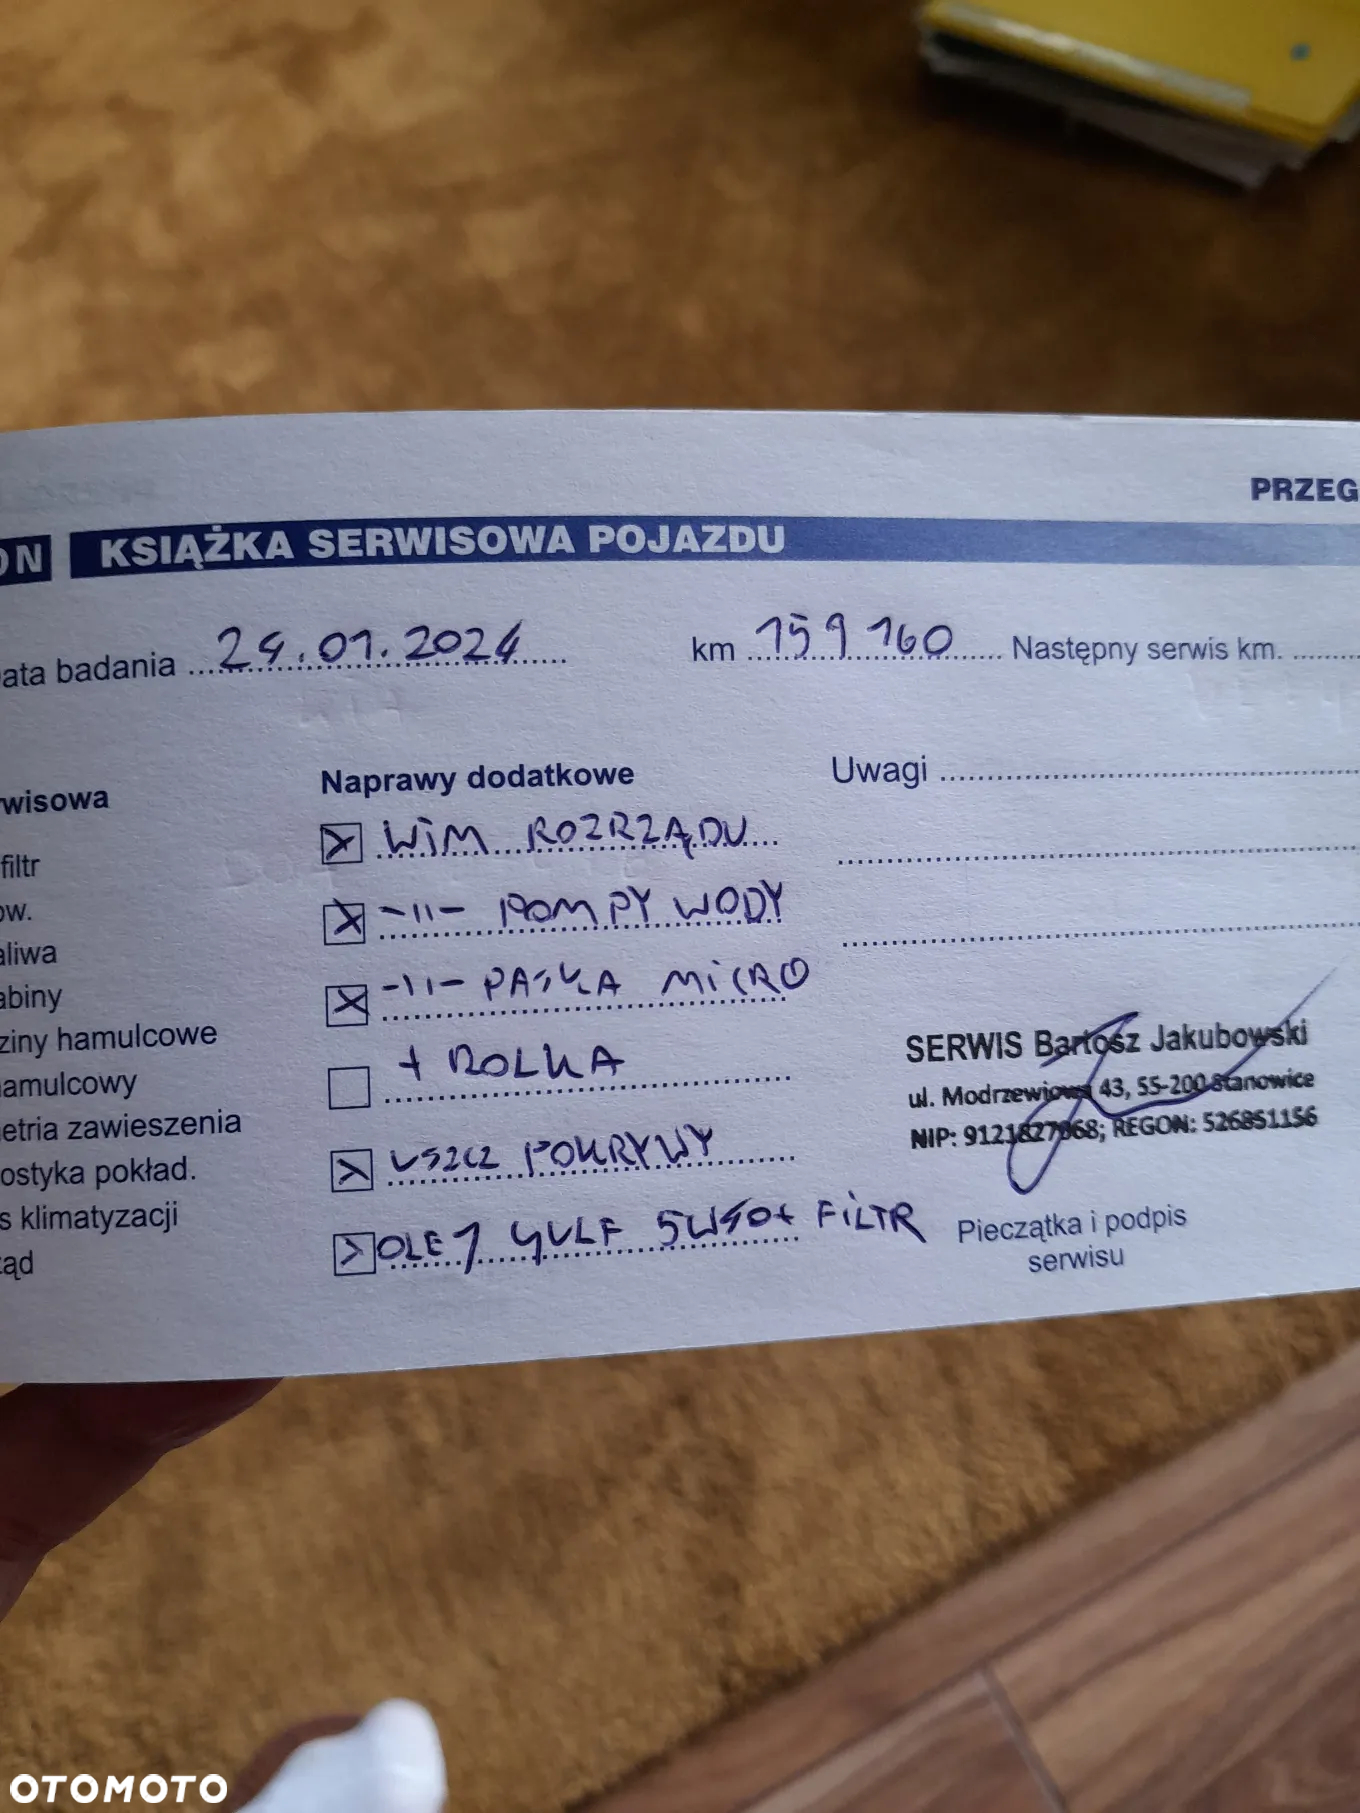 PRZEG
ON KSIĄŻKA SERWISOWA POJAZDU
ata badania 24.01.2024 km 159 160 Następny serwis km.
rwisowa
filtr
ow.
aliwa
abiny
ziny hamulcowe
hamulcowy
etria zawieszenia
ostyka pokład.
s klimatyzacji
ząd
Naprawy dodatkowe
WIM ROZRZĄDU
-11- POMPY WODY
-11- PASKA MICRO
+ ROLKA
USZCZ POKRYWY
OLEJ GULF 5W40+ FILTR
Uwagi
SERWIS Bartosz Jakubowski
ul. Modrzewiowa 43, 55-200 Stanowice
NIP: 9121827868; REGON: 526851156
Pieczątka i podpis
serwisu
OTOMOTO